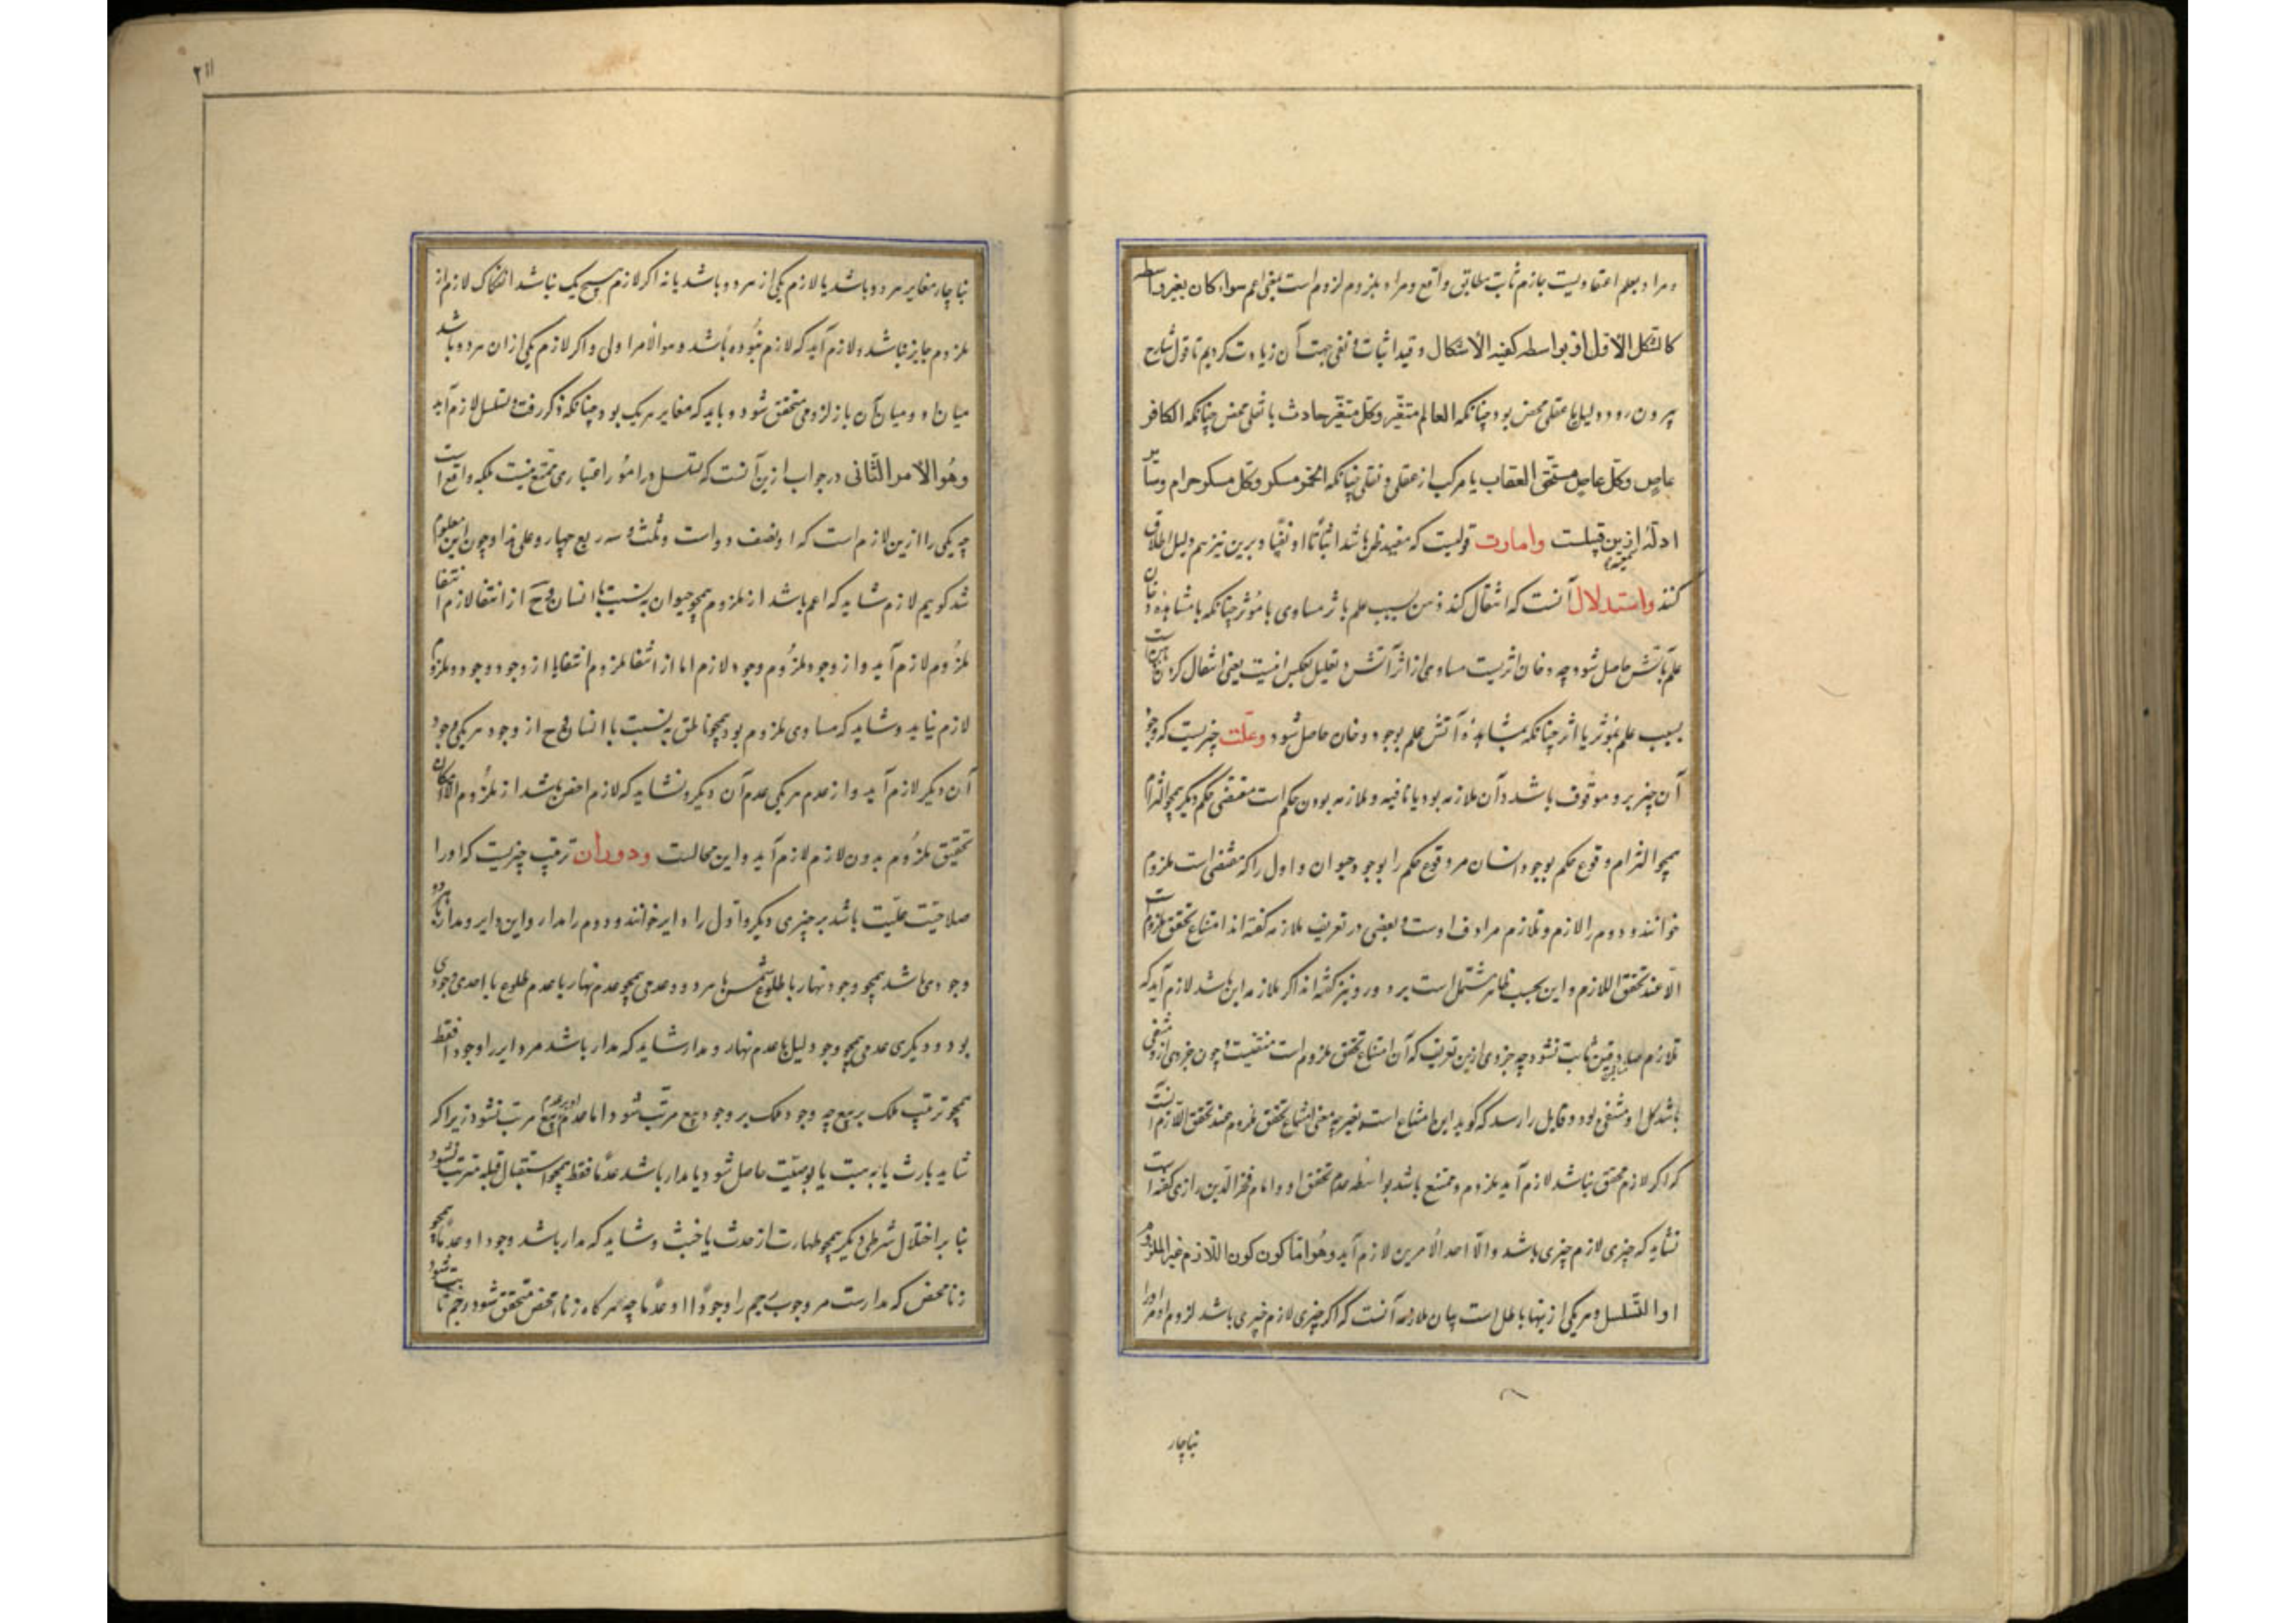 و مراد بعلم اعتقادیست جازم ثابت مطابق واقع و مراد بلزوم لزوم است بمعنی اعم سواء کان بغیر واسطه
کالشکل الاوّل او بواسطه کبقیه الاشکال و قید اثبات و نفی جهت آن زیادت کردیم تا قول شارح
بیرون رود و دلیل یا عقلی محض بود چنانکه العالم متغیّر وکلّ متغیّر حادث یا نقلی محض چنانکه الکافر
عاصٍ وکلّ عاصٍ مستحّق العقاب یا مرکب از عقلی و نقلی چنانکه الخمر مسکر وکلّ مسکر حرام و سایر
ادلّه ازین قبیلست وامارت قولیست که مفید ظن باشد اثباتًا او نفیًا و برین نیز هم دلیل اطلاق
کنند واستدلال آنست که انتقال کند ذهن بسبب علم باثر مساوی با مؤثر چنانکه با مشاهده دخان
علم بآتش حاصل شود چه دخان اثریست مساوی از اثر آتش و تعلیل بعکس اینست یعنی انتقال کردن
بسبب علم بمؤثر یا اثر چنانکه بمشاهده آتش علم بوجود دخان حاصل شود وعلّت چیزیست که وجود
آن چیز برو موقوف باشد و آن ملازمه بود یا نافیه و ملازمه بودن حکم است مقتضی حکم دیگر
همچو التزام وقوع حکم بوجود انسان مر وقوع حکم را بوجود حیوان و اول را که مقتضی است ملزوم
خوانند و دوم را لازم و تلازم مرادف اوست و بعضی در تعریف ملازمه گفته‌اند امتناع تحقق ملزوم است
الّا عند تحقق اللازم و این بحسب ظاهر مشتمل است بر دور و نیز گفته‌اند اگر ملازمه این باشد لازم آید که
تلازم صادقین ثابت نشود چه جزوی ازین تعریف که آن امتناع تحقق ملزوم است منتفیست و چون جزوی از و منتفی
باشد کل او منتفی بود و قایل را رسد که گوید این امتناع است بغیر چه معنی امتناع تحقق ملزوم عند تحقق اللّازم آنست
که اگر لازم محقق نباشد لازم آید ملزوم و ممتنع باشد بواسطه عدم تحقق او و امام فخر الدّین رازی گفته است
نشاید که چیزی لازم چیزی باشد والّا احد الأمرین لازم آید وهُوَ امّا کون کون اللّازم غیر الملزوم
او التّسلسل و هر یکی ازینها باطل است بیان ملازمه آنست که اگر چیزی لازم چیزی باشد لزوم او مر او را
بناچار
۲۱۱
بناچار مغایر هر دو باشد یا لازم یکی از هر دو باشد یا نه اگر لازم هیچ یک نباشد انفکاک لازم از
ملزوم جایز باشد و لازم آید که لازم نبوده باشد و هو الامر الاولی و اگر لازم یکی ازان هر دو باشد
میان او و میان آن باز لزومی متحقق شود و باید که مغایر هر یک بود چنانکه ذکر رفت و تسلسل لازم آید
وهُو الامر الثّانی در جواب ازین آنست که تسلسل در امور اعتباری ممتنع نیست بلکه واقع است
چه یکی را ازین لازم است که او نصف دو است و ثلث سه و ربع چهار و علی هذا و چون این معلوم
شد گوییم لازم شاید که اعم باشد از ملزوم همچو حیوان به نسبت با انسان و ح از انتفا لازم انتفا
ملزوم لازم آید و از وجود ملزوم وجود لازم اما از انتفا ملزوم انتفا یا از وجود وجود ملزوم
لازم نیاید و شاید که مساوی ملزوم بود همچو ناطق به نسبت با انسان و ح از وجود هر یکی وجود
آن دیگر لازم آید و از عدم هر یکی عدم آن دیگر و نشاید که لازم اخص باشد از ملزوم والّا امکان
تحقیق ملزوم بدون لازم لازم آید و این محالست ودوران ترتّب چیزیست که او را
صلاحیّت علّیت باشد بر چیزی دیگر و اوّل را دایر خوانند و دوم را مدار و این دایر و مدار یا هر دو
وجودی باشد همچو وجود نهار با طلوع شمس یا هر دو عدمی همچو عدم نهار با عدم طلوع یا احدی وجودی
بود و دیگری عدمی همچو وجود لیل با عدم نهار و مدار شاید که مدار باشد مر دایر را وجودا فقط
همچو ترتب ملک بر بیع چه وجود ملک بر وجود بیع مرتّب شود اما عدم او بر عدم بیع مرتب نشود زیرا که
شاید بارث یا به هبت یا بوصیّت حاصل شود یا مدار باشد عدمًا فقط همچو استقبال قبله مترتب نشود
بنا بر اختلال شرطی دیگر همچو طهارت از حدث یا خبث و شاید که مدار باشد وجودا و عدمًا همچو
زنا محض که مدارست مر وجوب رجم را وجودًا و عدمًا چه هر گاه زنا محض متحقق شود رجم ثابت شود